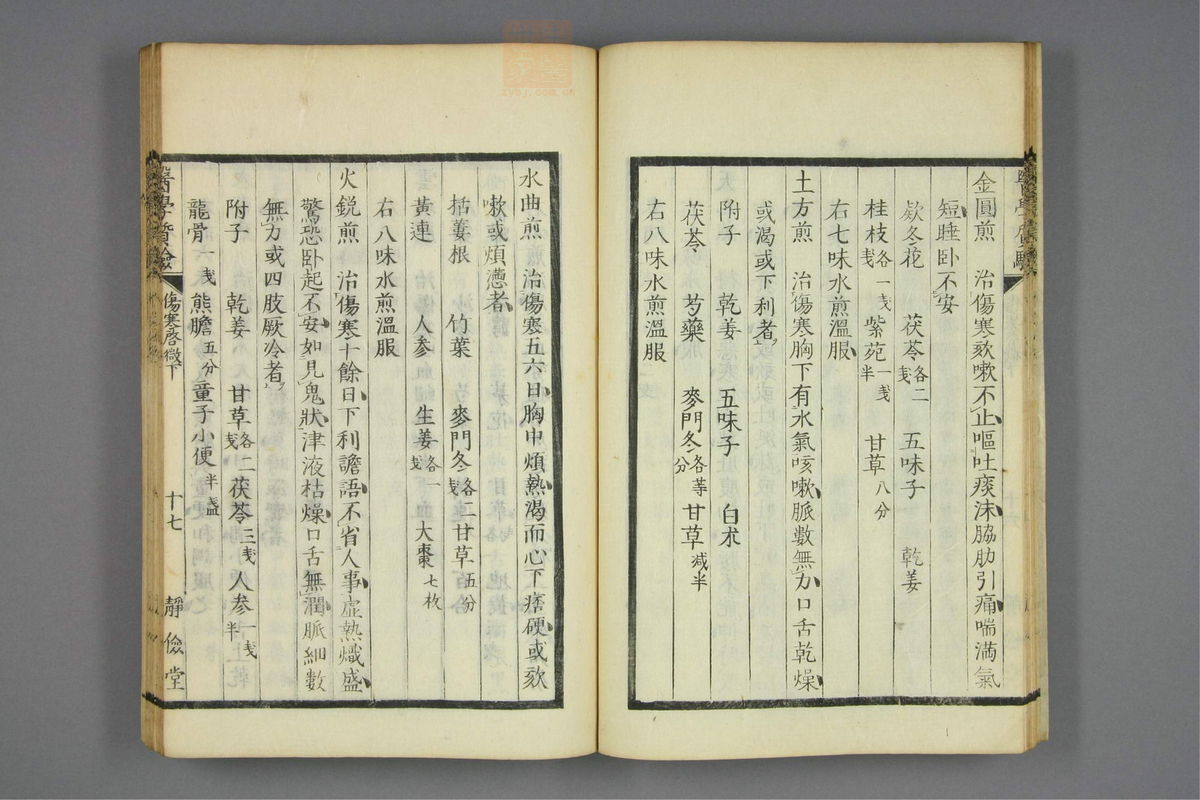 金圓煎 治傷寒欬嗽不止嘔吐痰沫脇肋引痛喘満氣
短睡卧不安
欵冬花 茯苓各二戔 五味子 乾姜
桂枝各一戔 紫苑一戔半 甘草八分
右七味水煎溫服
土方煎 治傷寒胸下有水氣咳嗽脈數無力口舌乾燥
或渴或下利者
附子 乾姜 五味子 白朮
茯苓 芍藥 麥門冬各等分 甘草減半
右八味水煎溫服
水曲煎 治傷寒五六日胸中煩熱渴而心下痞硬或欬
欶或煩懣者
栝姜根 竹葉 麥門冬各二戔 甘草五分
黄連 人参 生姜各一戔 大棗七枚
右八味水煎溫服
火鋭煎 治傷寒十餘日下利譫語不省人事虛熱熾盛
驚恐卧起不安如見鬼狀津液枯燥口舌無潤脈細數
無力或四肢厥冷者
附子 乾姜 甘草各二戔 茯苓三戔 人参一戔半
龍骨一戔 熊膽五分 童子小便半盞
醫學質驗 傷寒啓微下 十七 靜儉堂
zysj.com.cn